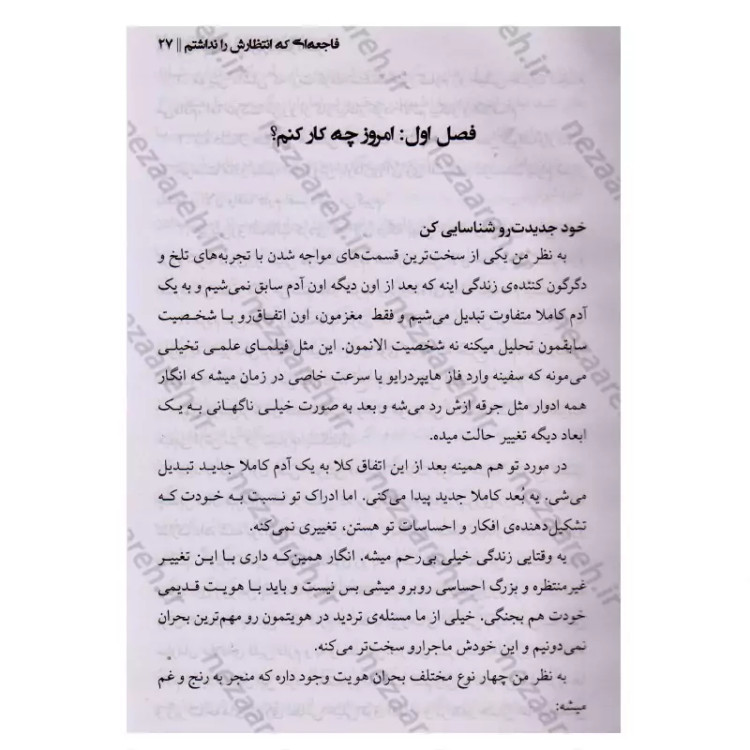 فاجعه‌ای که انتظارش را نداشتم || ۲۷
فصل اول: امروز چه کار کنم؟
خود جدیدت‌رو شناسایی کن
به نظر من یکی از سخت‌ترین قسمت‌های مواجه شدن با تجربه‌های تلخ و
دگرگون کننده‌ی زندگی اینه که بعد از اون دیگه اون آدم سابق نمی‌شیم و به یک
آدم کاملا متفاوت تبدیل می‌شیم و فقط مغزمون، اون اتفاق‌رو با شخصیت
سابقمون تحلیل میکنه نه شخصیت الانمون. این مثل فیلمای علمی تخیلی
می‌مونه که سفینه وارد فاز هایپردرایو یا سرعت خاصی در زمان میشه که انگار
همه ادوار مثل جرقه ازش رد می‌شه و بعد به صورت خیلی ناگهانی به یک
ابعاد دیگه تغییر حالت میده.
در مورد تو هم همینه بعد از این اتفاق کلا به یک آدم کاملا جدید تبدیل
می‌شی. یه بُعد کاملا جدید پیدا می‌کنی. اما ادراک تو نسبت به خودت که
تشکیل‌دهنده‌ی افکار و احساسات تو هستن، تغییری نمی‌کنه.
یه وقتایی زندگی خیلی بی‌رحم میشه. انگار همین‌که داری با این تغییر
غیرمنتظره و بزرگ احساسی روبرو میشی بس نیست و باید با هویت قدیمی
خودت هم بجنگی. خیلی از ما مسئله‌ی تردید در هویتمون رو مهم‌ترین بحران
نمی‌دونیم و این خودش ماجرارو سخت‌تر می‌کنه.
به نظر من چهار نوع مختلف بحران هویت وجود داره که منجر به رنج و غم
میشه:
nezaareh.ir